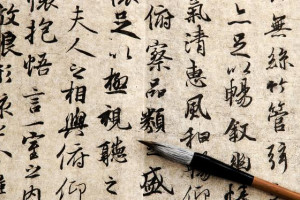 無絲竹管弦
足以暢敘幽
氣清惠風和暢
俯察品類盛
懷足以極視聽之
夫人之相與俯仰
懷抱悟言一室之内
放浪形